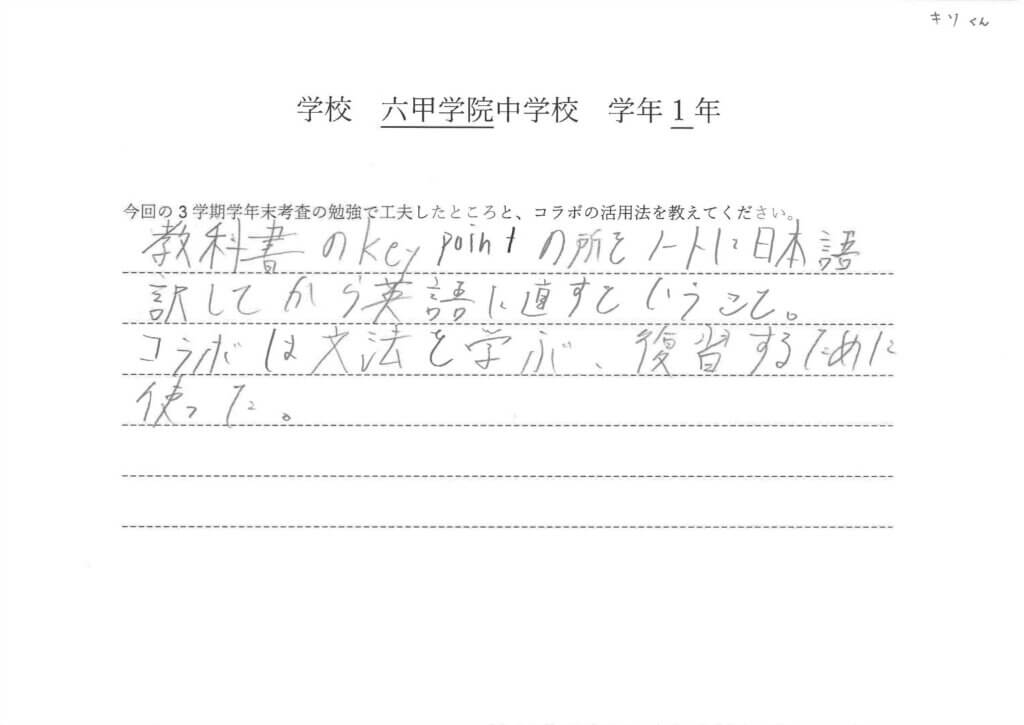 キソくん
学校　六甲学院中学校　学年1年
今回の3学期学年末考査の勉強で工夫したところと、コラボの活用法を教えてください。
教科書のkey pointの所をノートに日本語
訳してから英語に直すということ。
コラボは文法を学ぶ、復習するために
使った。